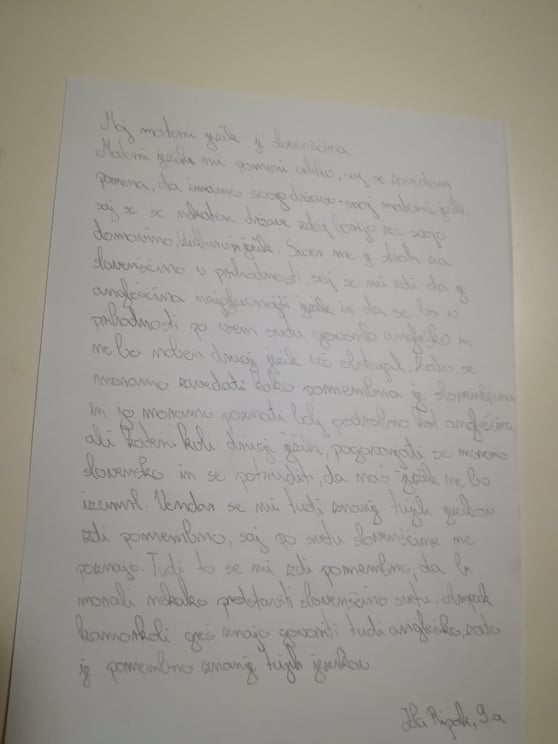 Moj materni jezik je slovenščina
Materni jezik mi pomeni veliko, saj se zavedam
pomena, da imamo svojo državo - svoj materni jezik,
saj se še nekatere države zdaj borijo za svojo
domovino, kulturo in jezik. Sicer me je strah za
slovenščino v prihodnosti, saj se mi zdi da je
angleščina najglavnejši jezik in da se bo v
prihodnosti po vsem svetu govorilo angleško in
ne bo noben drug jezik več obstajal. Zato se
moramo zavedati kako pomembna je slovenščina
in jo moramo poznati bolj podrobno kot angleščino,
ali katerikoli drugi jezik, pogovarjati se moramo
slovensko in se potruditi, da naš jezik ne bo
izumrl. Vendar se mi tudi znanje tujih jezikov
zdi pomembno, saj po svetu slovenščine ne
poznajo. Tudi to se mi zdi pomembno, da bi
morali nekako predstaviti slovenščino svetu. Ampak
kamorkoli greš znajo govoriti tudi angleško, zato
je pomembno znanje tujih jezikov.
9.a